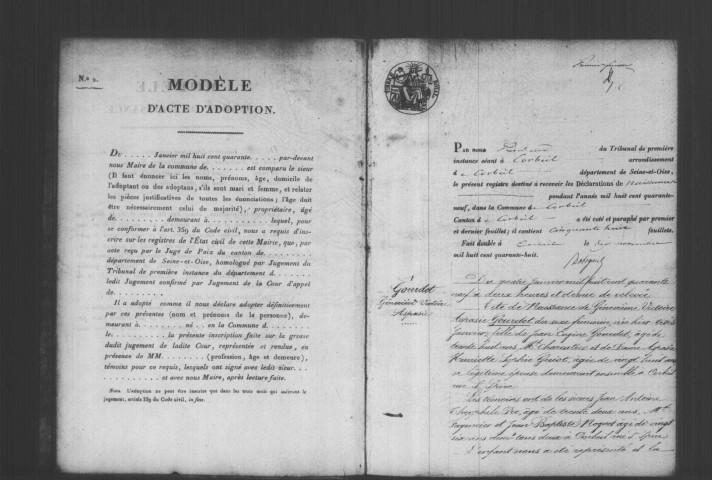 N.o 2.
MODÈLE
D'ACTE D'ADOPTION.
Du . . . . . Janvier mil huit cent quarante. . . . . . par-devant
nous Maire de la commune de. . . . . est comparu le sieur
(Il faut énoncer ici les noms, prénoms, âge, domicile de
l'adoptant ou des adoptans, s'ils sont mari et femme, et relater
les pièces justificatives de toutes les énonciations; l'âge doit
être nécessairement celui de majorité), propriétaire, âgé
de. . . . . . demeurant à . . . . . . . . . . lequel, pour
se conformer à l'art. 359 du Code civil, nous a requis d'ins-
crire sur les registres de l'État civil de cette Mairie, que, par
acte reçu par le Juge de Paix du canton de. . . . . . .
département de Seine-et-Oise, homologué par Jugement du
Tribunal de première instance du département d. . . . . .
ledit Jugement confirmé par Jugement de la Cour d'appel
de. . . . . . . . . .
Il a adopté comme il nous déclare adopter définitivement
par ces présentes (nom et prénoms de la personne), de-
meurant à. . . . . né . . en la Commune d. . . . . .
le. . . . . . . . la présente inscription faite sur la grosse
dudit jugement de ladite Cour, représentée et rendue, en
présence de MM. . . . . . . (profession, âge et demeure),
témoins pour ce requis, lesquels ont signé avec ledit sieur. . . .
. . . . . . . . . . et avec nous Maire, après lecture faite.
Nota. L'adoption ne peut être inscrite que dans les trois mois qui suivront le
jugement, article 359 du Code civil, in fine.
Par nous du Tribunal de première
instance séant à Corbeil arrondissement
de Corbeil département de Seine-et-Oise,
le présent registre destiné à recevoir les Déclarations de Naissances
pendant l'année mil huit cent quarante-
neuf, dans la Commune de Corbeil
Canton de Corbeil a été coté et paraphé par premier
et dernier feuillet; il contient cinquante huit feuillets.
Fait double à Corbeil le dix novembre
mil huit cent quarante-huit.
Gourdet
Geneviève Victoire
Aspasie
Du quatre janvier mil huit cent quarante
neuf à deux heures et demie de relevée
Acte de Naissance de Geneviève Victoire
Aspasie Gourdet du sexe féminin, née hier trois
Janvier, fille de Jean Eugène Gourdet, âgé de
trente huit ans, Md Charcutier et de Dame Aspasie
Henriette Sophie âgée de vingt huit ans
sa légitime épouse demeurant ensemble à Corbeil
rue St Spire
Les témoins ont été les sieurs Jean Antoine
Théophile âgé de trente deux ans, Md
et Jean Baptiste âgé de vingt
six ans demt tous deux à Corbeil rue St Spire
L'enfant nous a été représenté et la